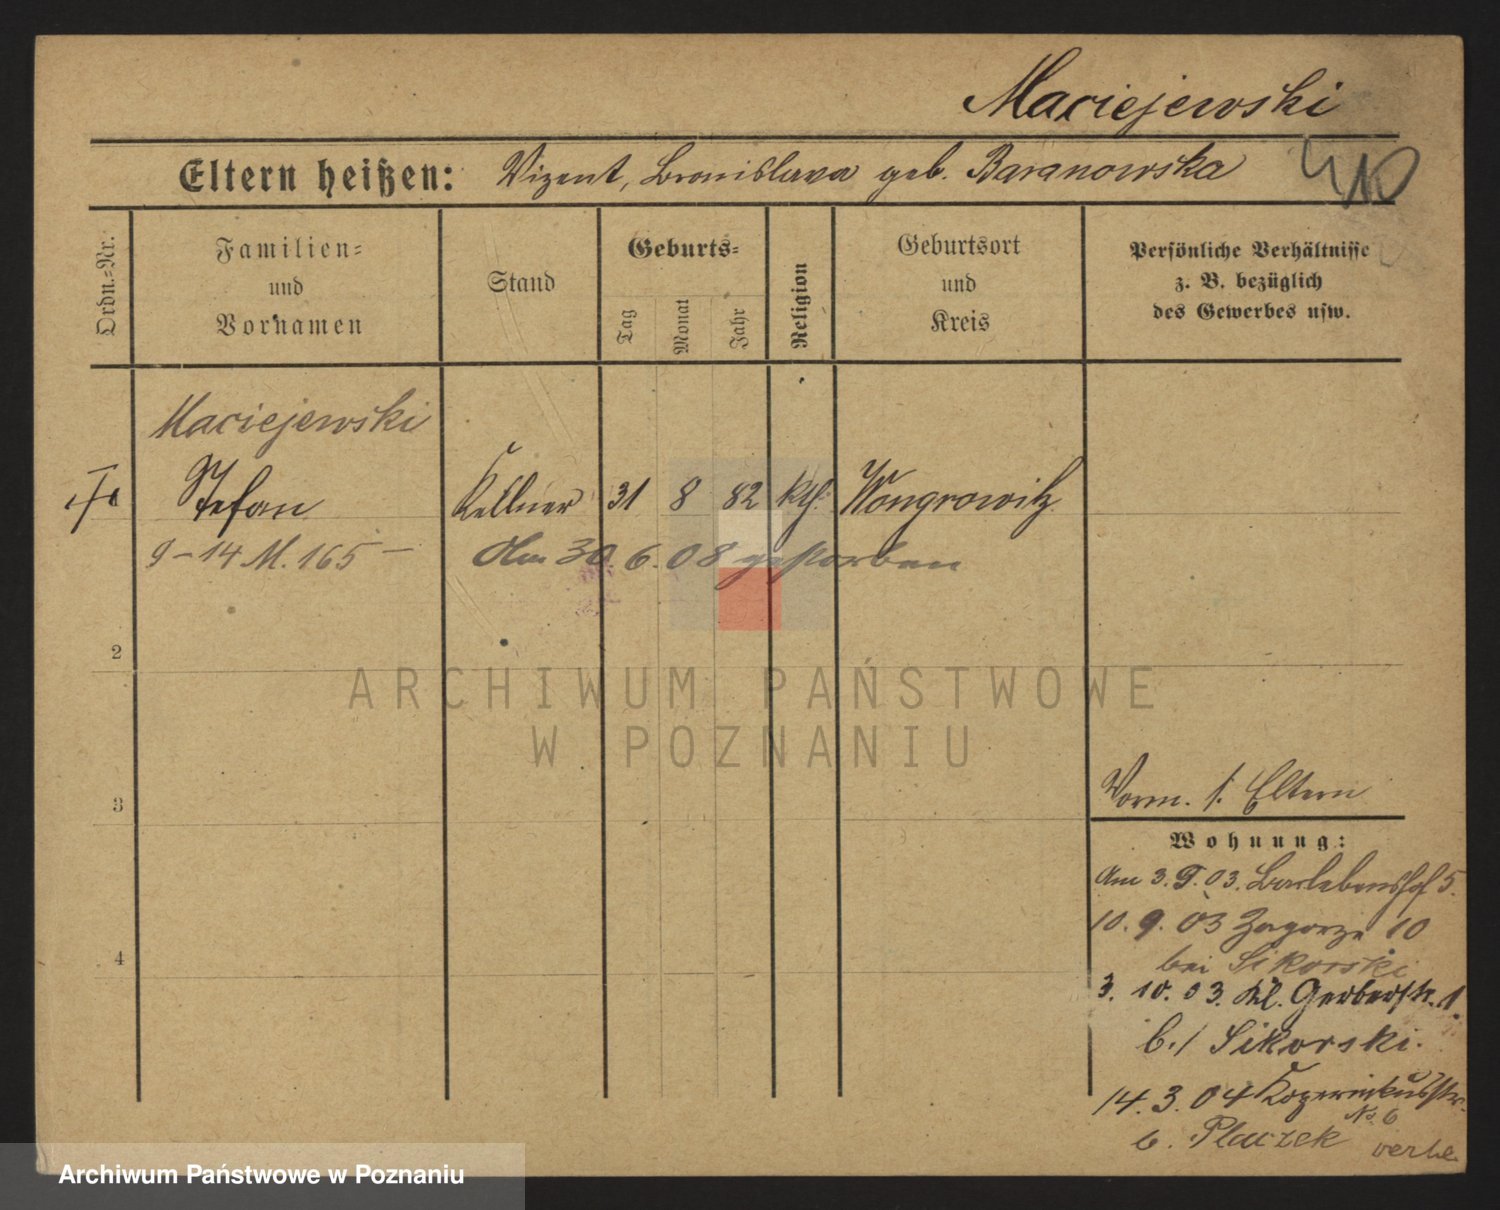 Maciejewski
Eltern heißen: Vizent, Bronislava geb. Baranowska
Ordn.-Nr.
Familien-
und
Vornamen
Stand
Geburts-
Tag
Monat
Jahr
Religion
Geburtsort
und
Kreis
Persönliche Verhältnisse
z. B. bezüglich
des Gewerbes usw.
Maciejewski
Stefan Kellner 31 8 82 kth. Wongrowitz
9 - 14 M. 165 -
Am 30.6.08 gestorben
2
3
4
Vorm. s. Eltern
Wohnung:
Am 3.9.03. Barlebenshof 5.
10.9.03 Zagorze 10
bei Sikorski
3.10.03. Kl. Gerberstr. 1.
b./ Sikorski.
14.3.04
No 6
b. Placzek
ARCHIWUM PAŃSTWOWE
W POZNANIU
Archiwum Państwowe w Poznaniu